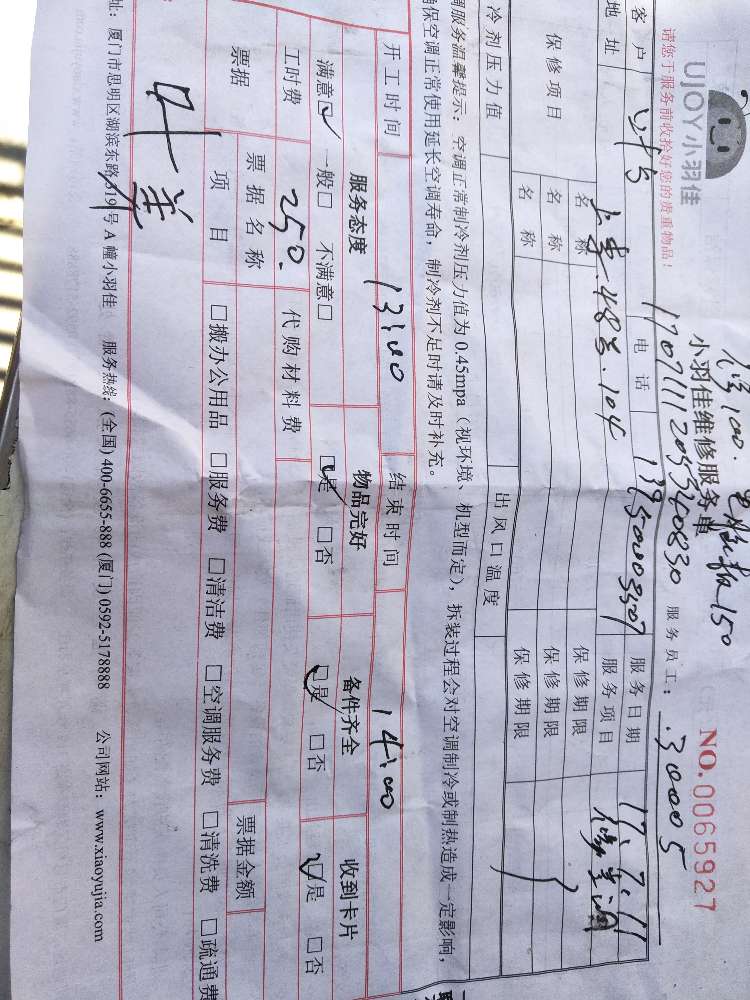 修100.
UJOY小羽佳
小羽佳维修服务单
NO.0065927
1707111205340830 服务员工： 30005
请您于服务前收拾好您的贵重物品！
客户 电话 13950003507 服务日期 17.7.11
地址 48号.104 服务项目 修空调
保修项目 名称 保修期限
名称 保修期限
名称 保修期限
冷剂压力值 出风口温度
调服务温馨提示：空调正常制冷剂压力值为 0.45mpa（视环境、机型而定），拆装过程会对空调制冷或制热造成一定影响，
确保空调正常使用延长空调寿命，制冷剂不足时请及时补充。
开工时间 13:00 结束时间 14:00
服务态度 物品完好 备件齐全 收到卡片
满意☑ 一般□ 不满意□ ☑是 □否 ☑是 □否 ☑是 □否
工时费 250. 代购材料费
票据 票据名称 票据金额
项目 □搬办公用品 □服务费 □清洁费 □空调服务费 □清洗费 □疏通费
址：厦门市思明区湖滨东路 319号 A 幢小羽佳 服务热线：(全国) 400-6655-888 (厦门) 0592-5178888 公司网站：www.xiaoyujia.com